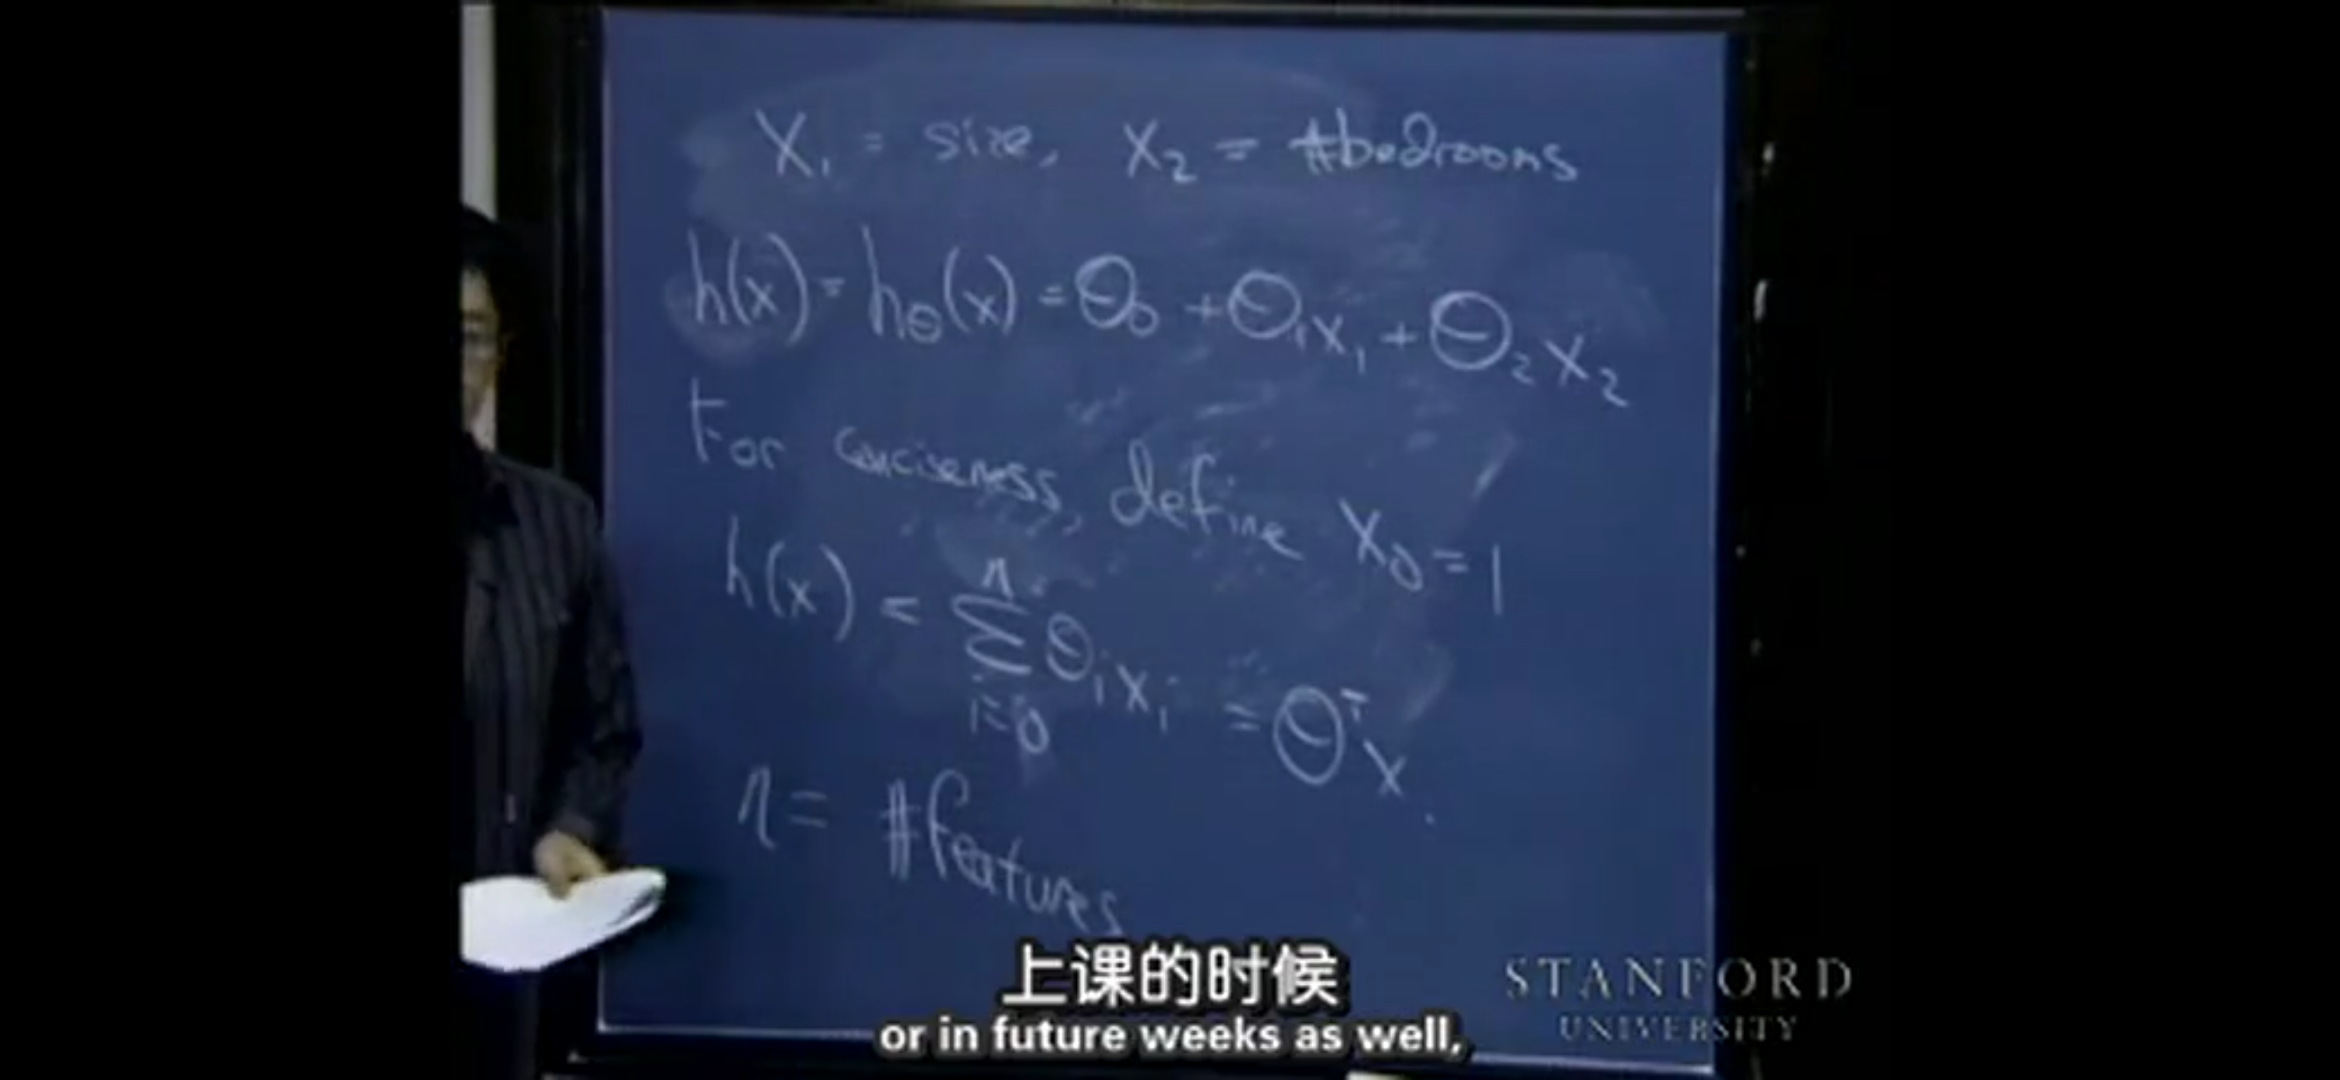 X₁ = size, X₂ = #bedrooms
h(x) = hθ(x) = θ₀ + θ₁x₁ + θ₂x₂
For conciseness, define X₀ = 1
h(x) = n∑i=0 θᵢxᵢ = θᵀx.
n = #features
上课的时候
or in future weeks as well,
STANFORD
UNIVERSITY